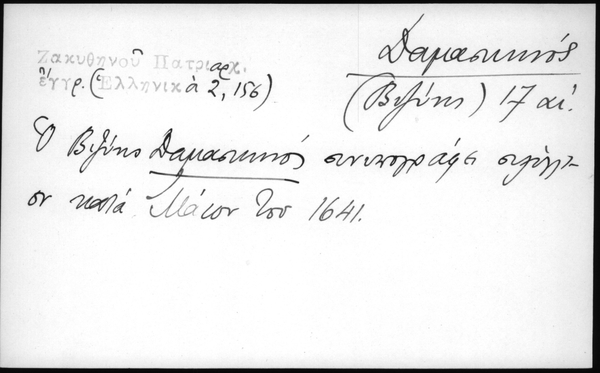 Ζακυθηνοῦ Πατριαρχ.
ἔγγρ. (Ἑλληνικὰ 2, 156)
Δαμασκηνός
(Βιζύης) 17 αἰ.
Ὁ Βιζύης Δαμασκηνός συνυπογράφει σιγίλλι-
ον κατά Μάιον του 1641.